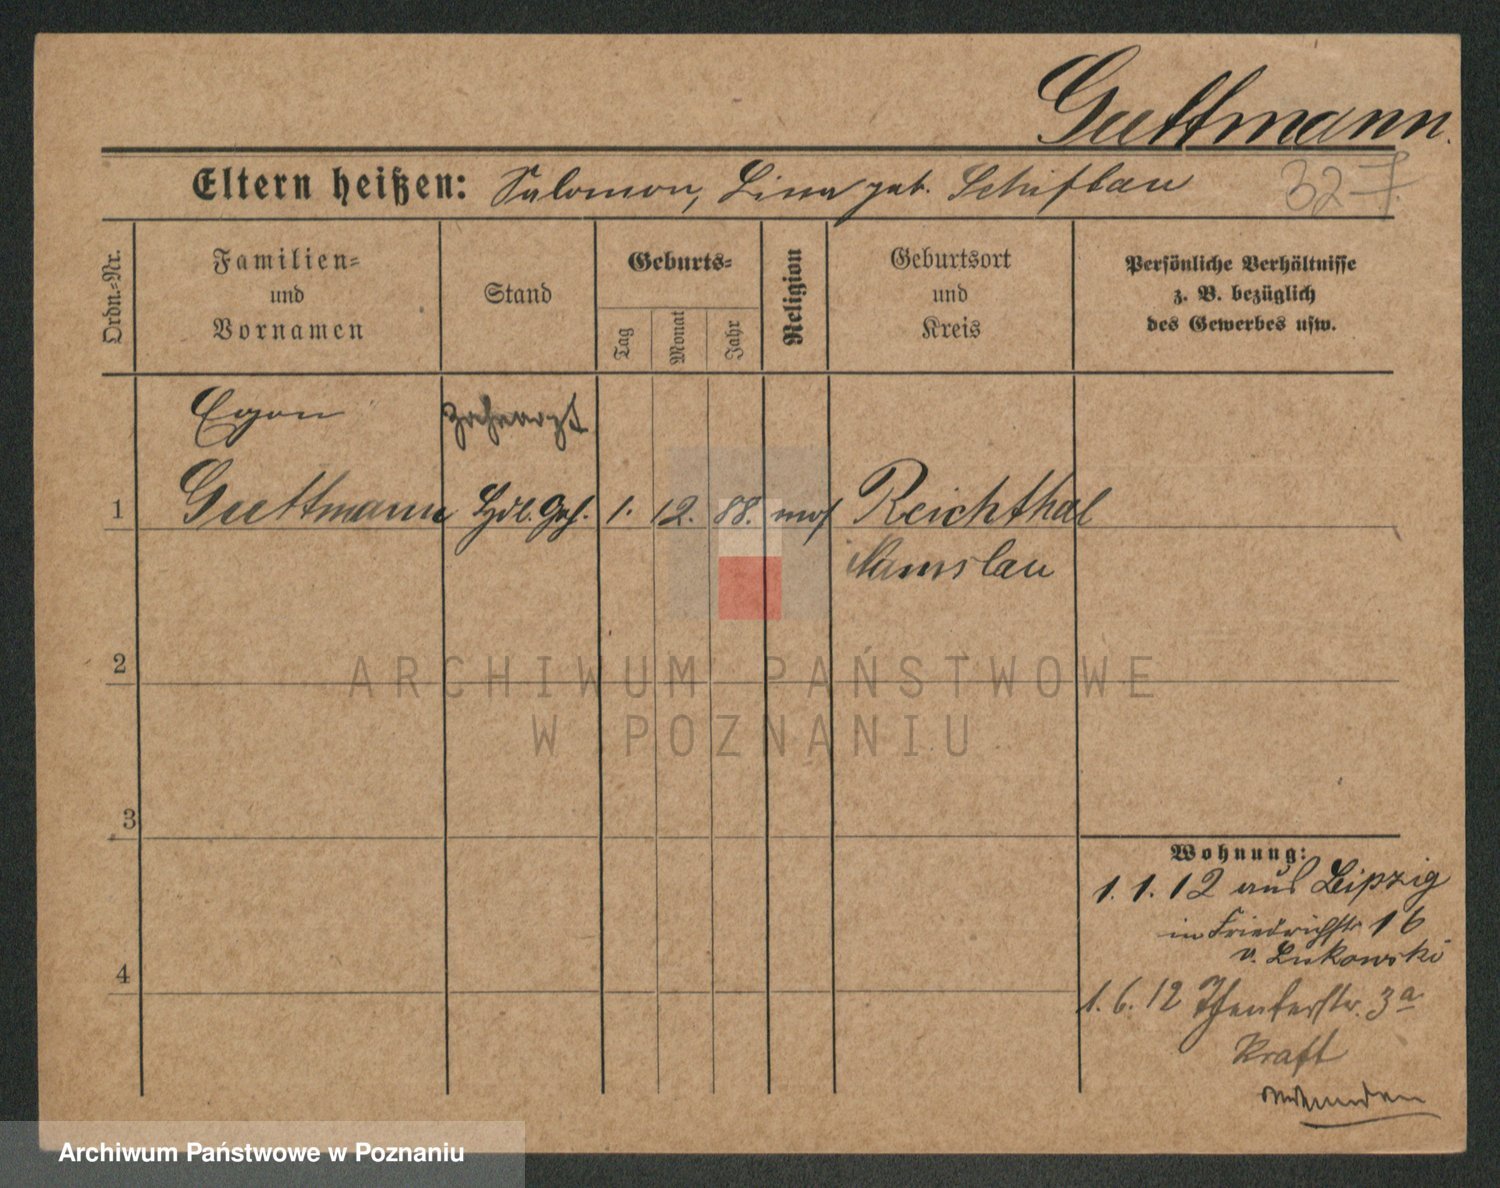 Guttmann.
Eltern heißen: Salomon, Lina geb. Schiftan
327.
Ordn.-Nr.
Familien-
und
Vornamen
Stand
Geburts-
Tag
Monat
Jahr
Religion
Geburtsort
und
Kreis
Persönliche Verhältnisse
z. B. bezüglich
des Gewerbes usw.
Egon Zahnarzt
1 Guttmann Hdl. Geh. 1. 12. 88. mos Reichthal
Namslau
2
3
4
Wohnung:
1. 1. 12 aus Leipzig
in Friedrichstr 16
v. Lukowski
1. 6. 12 Theaterstr. 3a
Kraft
ARCHIWUM PAŃSTWOWE
W POZNANIU
Archiwum Państwowe w Poznaniu